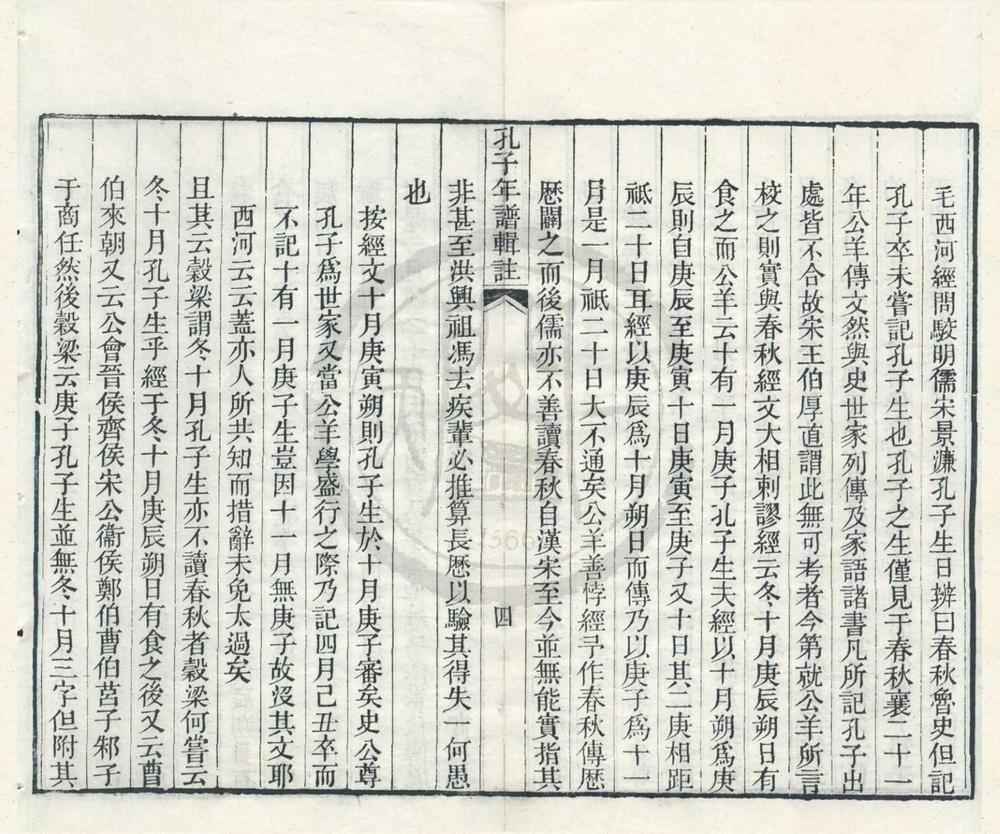 毛西河經問駁明儒宋景濂孔子生日辨曰春秋魯史但記
孔子卒未嘗記孔子生也孔子之生僅見于春秋襄二十一
年公羊傳文然與史世家列傳及家語諸書凡所記孔子出
處皆不合故宋王伯厚直謂此無可考者今第就公羊所言
校之則實與春秋經文大相剌謬經云冬十月庚辰朔日有
食之而公羊云十有一月庚子孔子生夫經以十月朔爲庚
辰則自庚辰至庚寅十日庚寅至庚子又十日其二庚相距
祗二十日耳經以庚辰爲十月朔日而傳乃以庚子爲十一
月是一月祗二十日大不通矣公羊善悖經予作春秋傳歷
歷闢之而後儒亦不善讀春秋自漢宋至今並無能實指其
孔子年譜輯註
四
非甚至洪興祖馮去疾輩必推算長歷以驗其得失一何愚
也
按經文十月庚寅朔則孔子生於十月庚子審矣史公尊
孔子爲世家又當公羊學盛行之際乃記四月己丑卒而
不記十有一月庚子生豈因十一月無庚子故沒其文耶
西河云云蓋亦人所共知而措辭未免太過矣
且其云穀梁謂冬十月孔子生亦不讀春秋者穀梁何嘗云
冬十月孔子生乎經于冬十月庚辰朔日有食之後又云曹
伯來朝又云公會晉侯齊侯宋公衞侯鄭伯曹伯莒子邾子
于商任然後穀梁云庚子孔子生並無冬十月三字但附其
1566